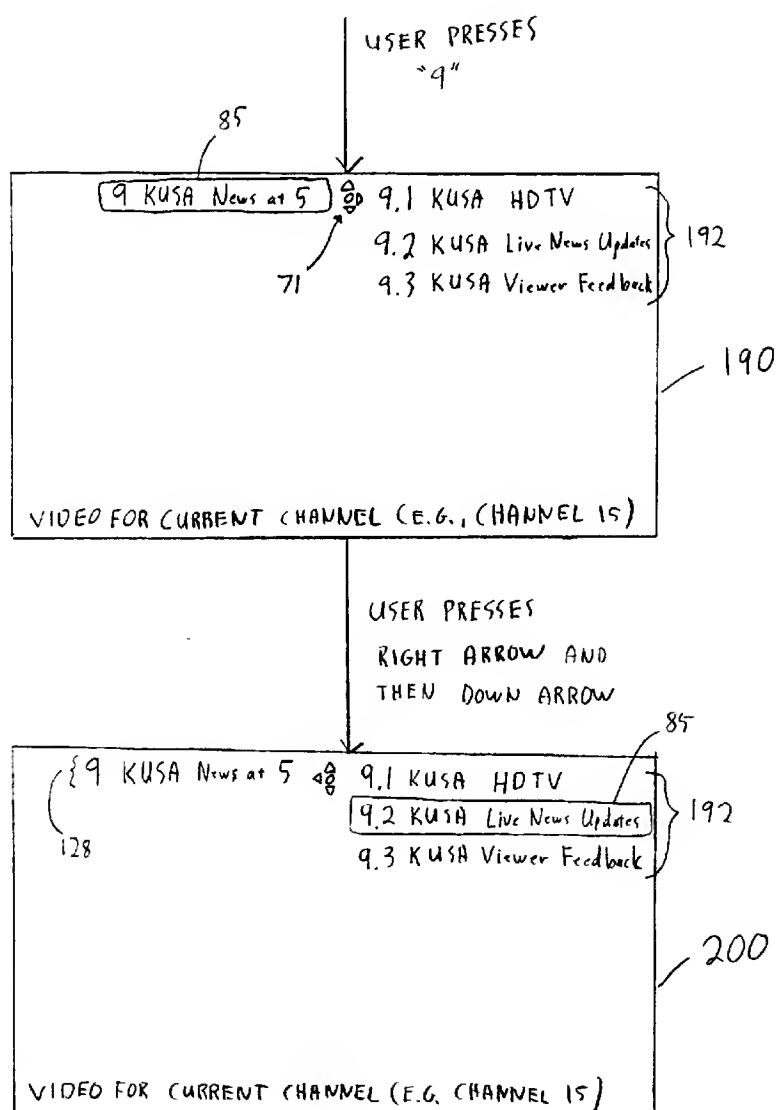 USER PRESSES
"9"
85
9 KUSA News at 5
9.1 KUSA HDTV
9.2 KUSA Live News Updates
192
71
9.3 KUSA Viewer Feedback
190
VIDEO FOR CURRENT CHANNEL (E.G., CHANNEL 15)
USER PRESSES
RIGHT ARROW AND
THEN DOWN ARROW
85
{9 KUSA News at 5
9.1 KUSA HDTV
9.2 KUSA Live News Updates
192
128
9.3 KUSA Viewer Feedback
200
VIDEO FOR CURRENT CHANNEL (E.G. CHANNEL 15)